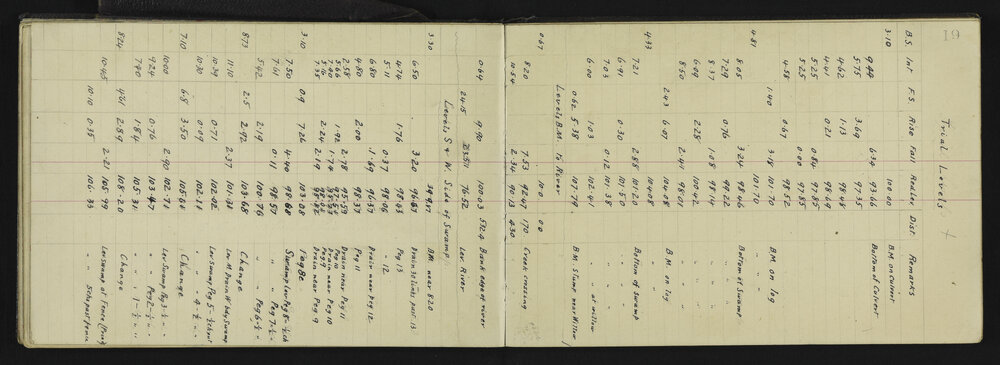 19
Trial Levels +
B.S. Int F.S. Rise Fall Red Lev Dist. Remarks
3.10 100.00 B M on Culvert
9.44 6.34 93.66 Bottom of Culvert
5.75 3.69 97.35 " "
4.62 1.13 98.48 " "
4.41 0.21 98.69 " "
5.25 0.84 97.85 " "
5.25 0.00 97.85 " "
4.58 0.67 98.52 " "
1.40 3.18 101.70 BM on log
4.81 101.70 " "
8.05 3.24 98.46 Bottom of swamp
7.29 0.76 99.22 " "
8.37 1.08 98.14 " "
6.09 2.28 100.42 " "
8.50 2.41 98.01 " "
2.43 6.07 104.08 B.M. on log
4.33 104.08 " "
7.21 2.88 101.20 Bottom of swamp
6.91 0.30 101.50 " "
7.03 0.12 101.38 " "
6.00 1.03 102.41 " " at willow
0.62 5.38 107.79 B.M. Stump near Willow
Levels B.M. to River
0.67 100.0 00
8.20 7.53 92.47 170 Creek crossing
10.54 2.34 90.13 430
0.64 9.90 100.03 512.4 Bank edge of river
24.15 23.511 76.52 Lev River
Levels S & W. Side of Swamp
3.30 99.87 BM near B20
6.50 3.20 96.67 Drain
4.74 1.76 98.43 Peg 13
5.11 0.37 98.06 " 12
6.80 1.69 96.37 Drain near peg 12
4.80 2.00 98.37 Peg 11
7.58 2.78 95.59 Drain near Peg 11
5.66 1.92 97.51 Peg 10
7.40 1.74 95.77 Drain near Peg 10
5.16 2.24 98.01 Peg 9
7.35 2.19 95.82 Drain near Peg 9
3.10 0.9 7.26 103.08 Peg 8c
7.50 4.40 98.68 Swamp Lev Peg 8-½ch
7.61 0.11 98.57 " " Peg 7-½ "
5.42 2.19 100.76 " " Peg 6-½ "
8.73 2.5 2.92 103.68 Change
11.10 2.37 101.31 Lev M. Drain W bdy Swamp
10.39 0.71 102.02 Lev Swamp Peg 5-½ch out
10.30 0.09 102.11 " " 4-½ "
7.10 6.8 3.50 105.61 Change
10.00 2.90 102.71 Lev Swamp Peg 3-½ "
9.24 0.76 103.47 " " Peg 2-½ "
7.40 1.84 105.31 " " 1-½ "
8.24 4.51 2.89 108.20 Change
10.45 2.21 105.99 Lev Swamp at Fence
10.10 0.35 106.33 " " 5 chs past fence